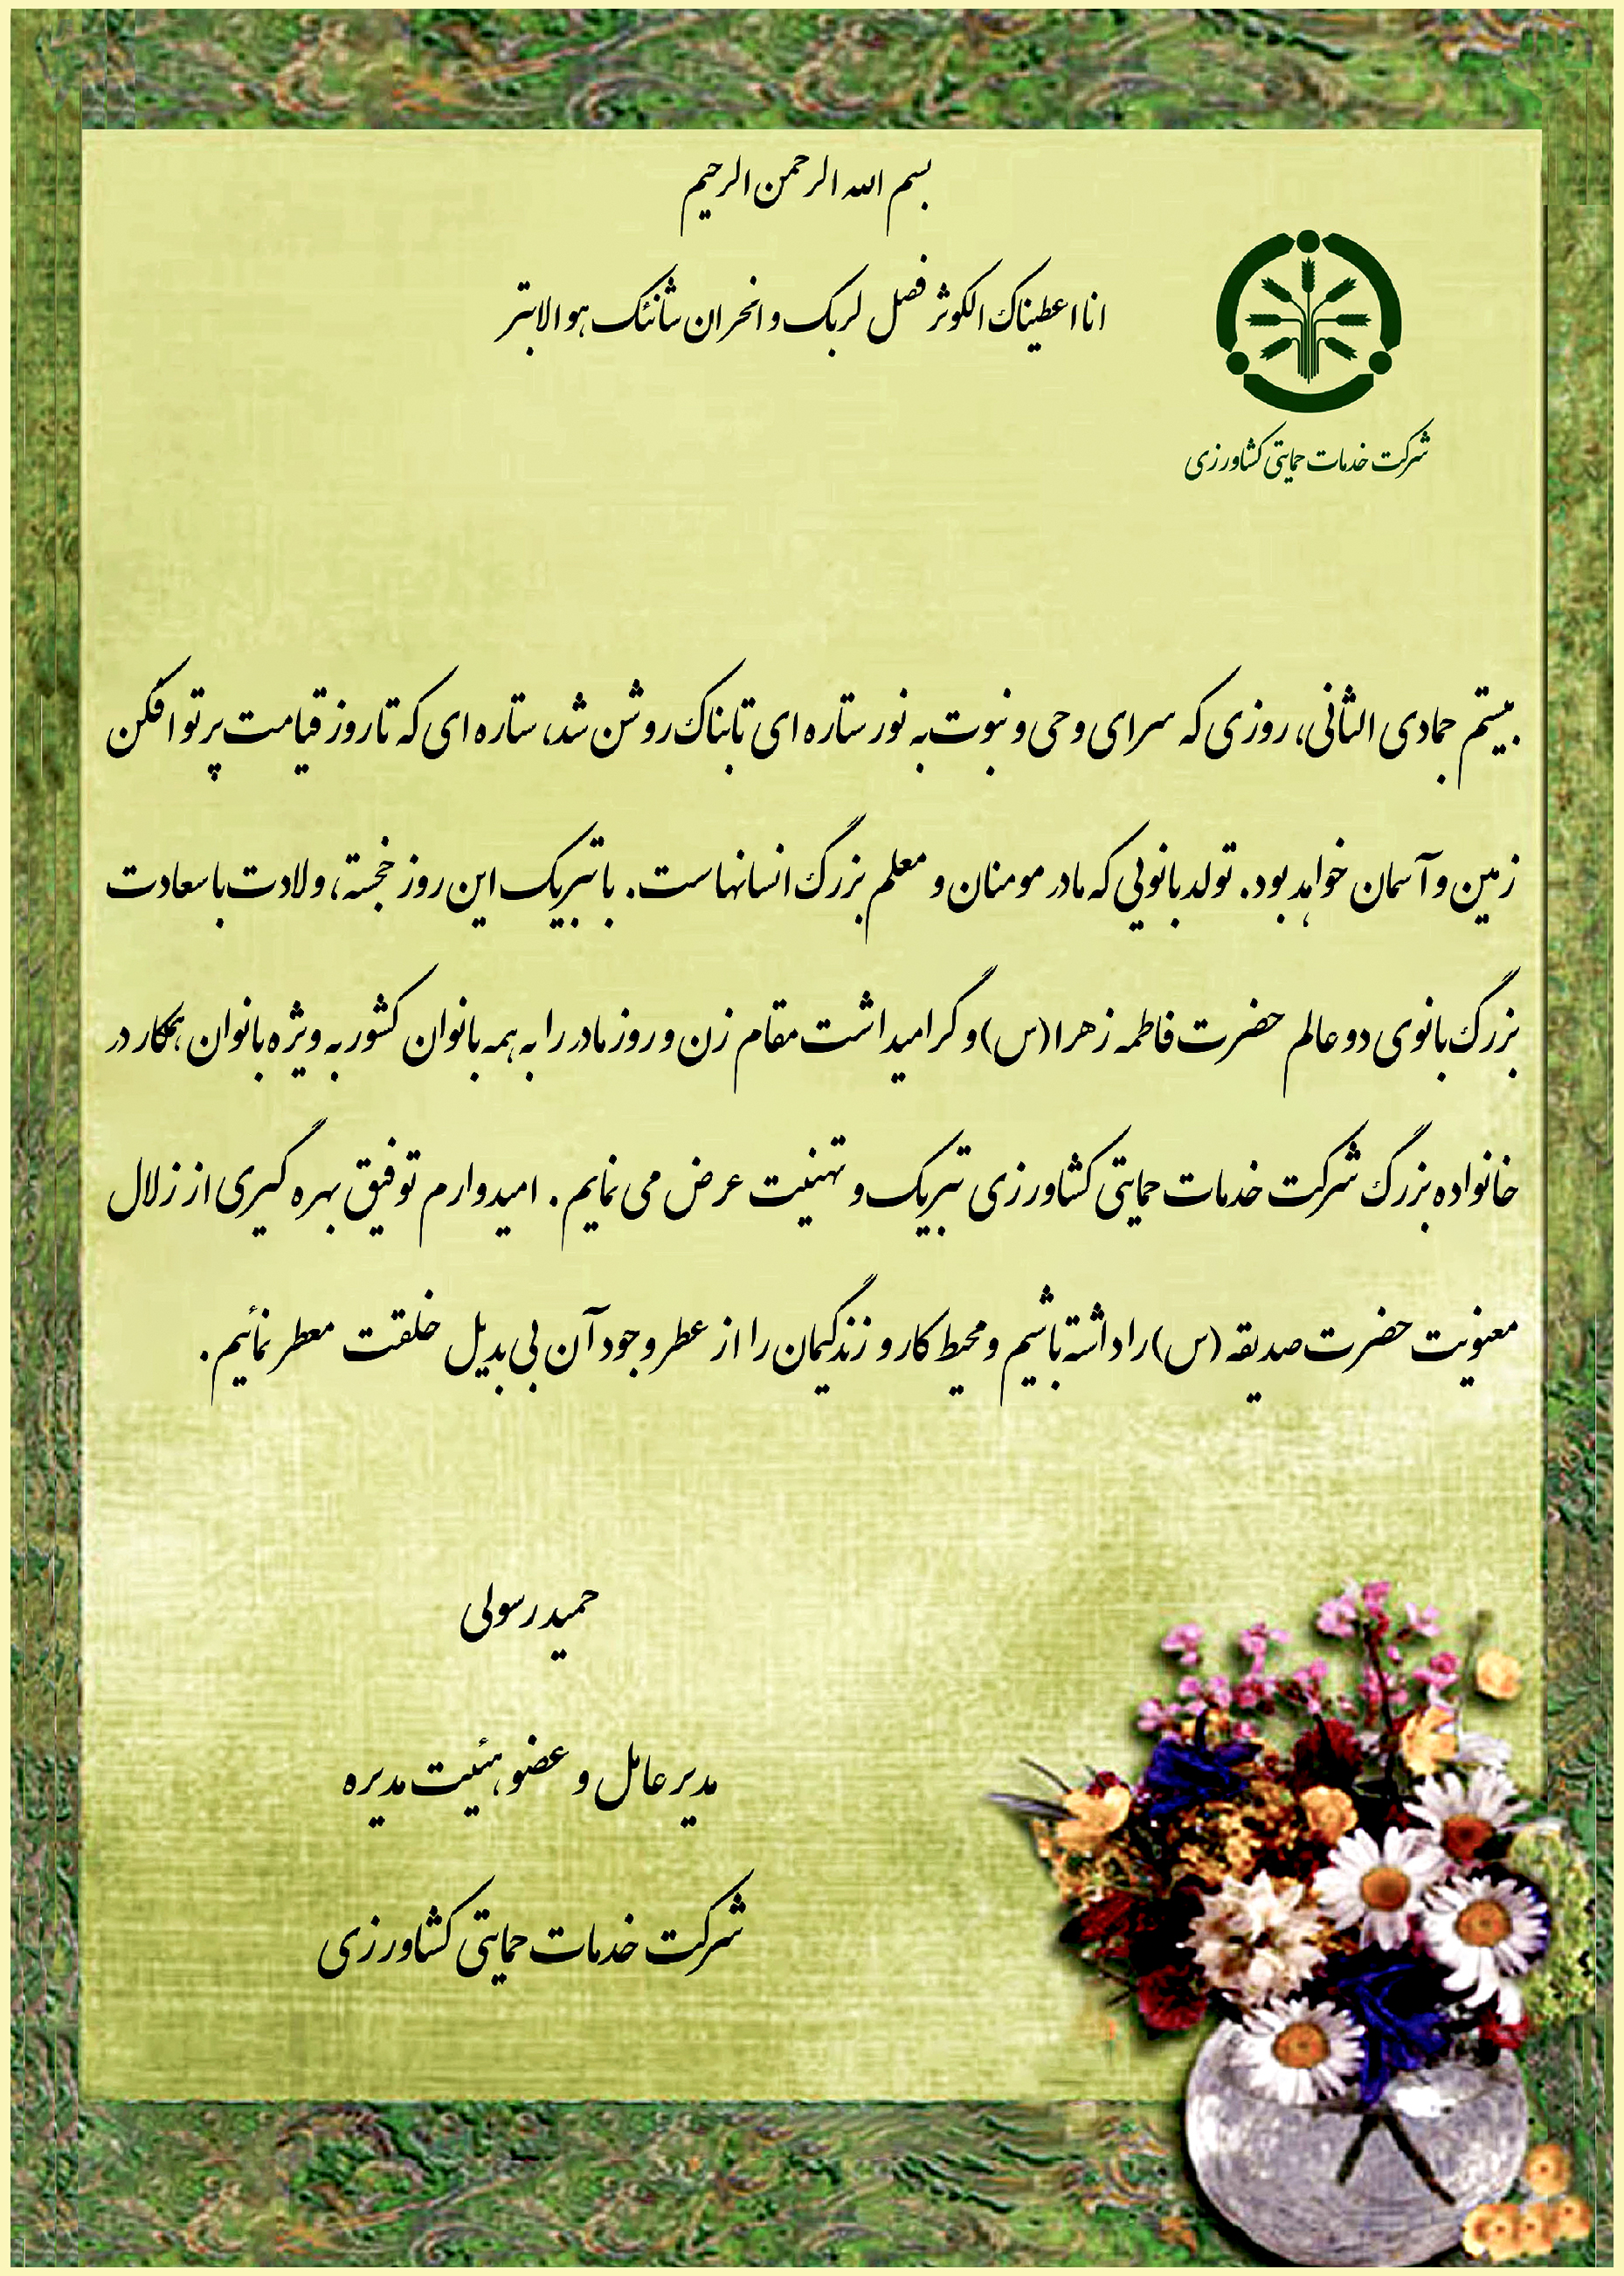 بسم الله الرحمن الرحیم
انا اعطیناک الکوثر فصل لربک و انحر ان شانئک هو الابتر
شرکت خدمات حمایتی کشاورزی
بیستم جمادی الثانی، روزی که سرای وحی و نبوت به نور ستاره ای تابناک روشن شد، ستاره ای که تا روز قیامت پرتو افکن
زمین و آسمان خواهد بود. تولد بانویی که مادر مومنان و معلم بزرگ انسانهاست. با تبریک این روز خجسته، ولادت با سعادت
بزرگ بانوی دو عالم حضرت فاطمه زهرا (س) و گرامیداشت مقام زن و روز مادر را به همه بانوان کشور به ویژه بانوان همکار در
خانواده بزرگ شرکت خدمات حمایتی کشاورزی تبریک و تهنیت عرض می نمایم. امیدوارم توفیق بهره گیری از زلال
معنویت حضرت صدیقه (س) را داشته باشیم و محیط کار و زندگیمان را از عطر وجود آن بی بدیل خلقت معطر نمائیم.
حمید رسولی
مدیر عامل و عضو هئیت مدیره
شرکت خدمات حمایتی کشاورزی